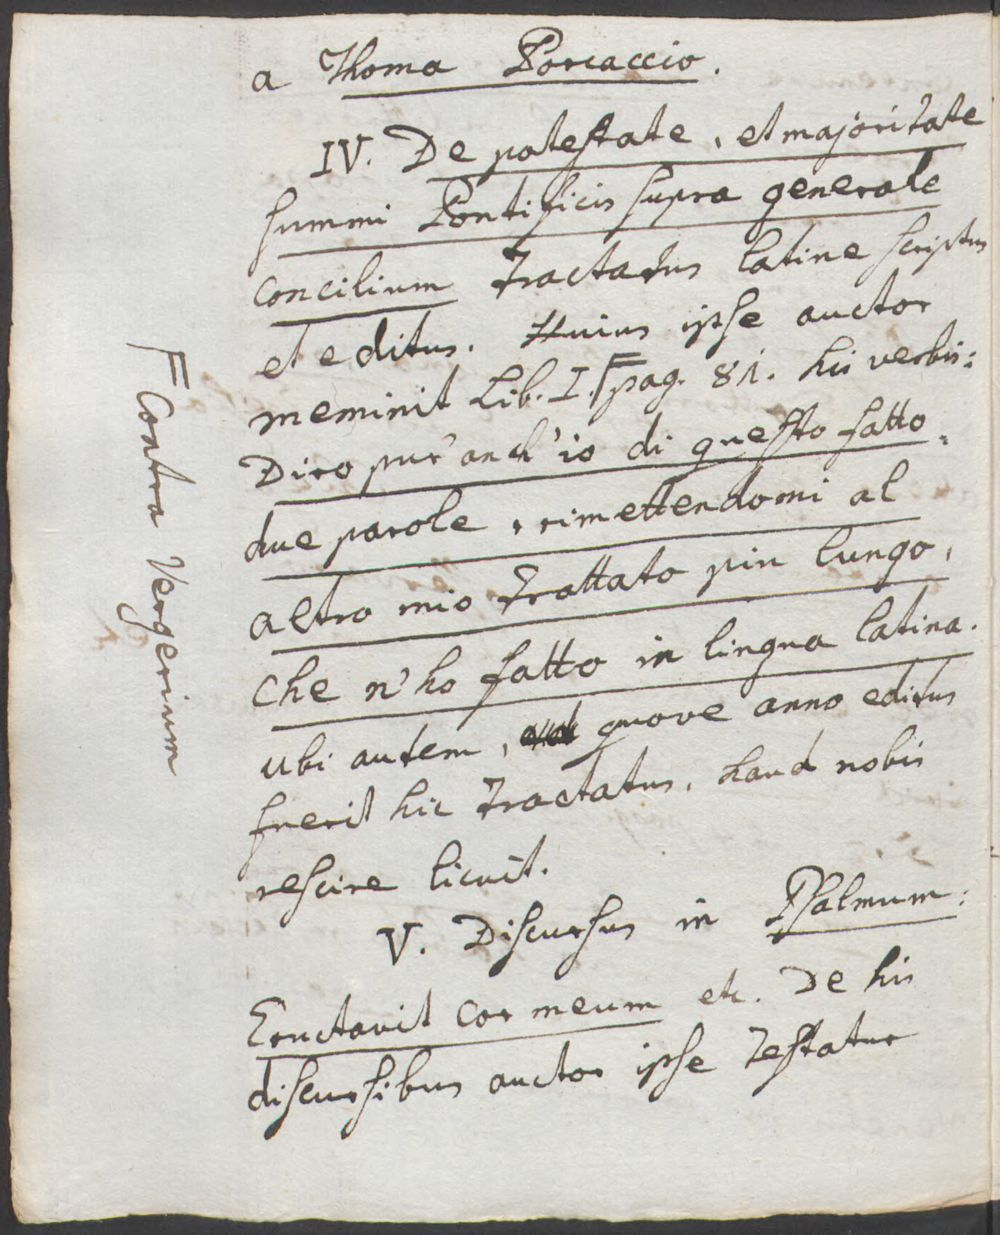 a Thoma Porcaccio.
IV. De potestate, et majoritate
summi Pontificis supra generale
concilium tractatus latine scriptus
et editus. Huius ipse auctor
meminit Lib. I. pag. 81. his verbis:
Diro pur' anch'io di questo fatto
due parole, rimettendomi al
altro mio trattato piu lungo,
che n'ho fatto in lingua latina.
ubi autem, quove anno editus
fuerit hic tractatus, haud nobis
rescire licuit.
V. Discursus in Psalmum:
Eructavit cor meum etc. De his
discursibus auctor ipse testatur
Contra Vergerium